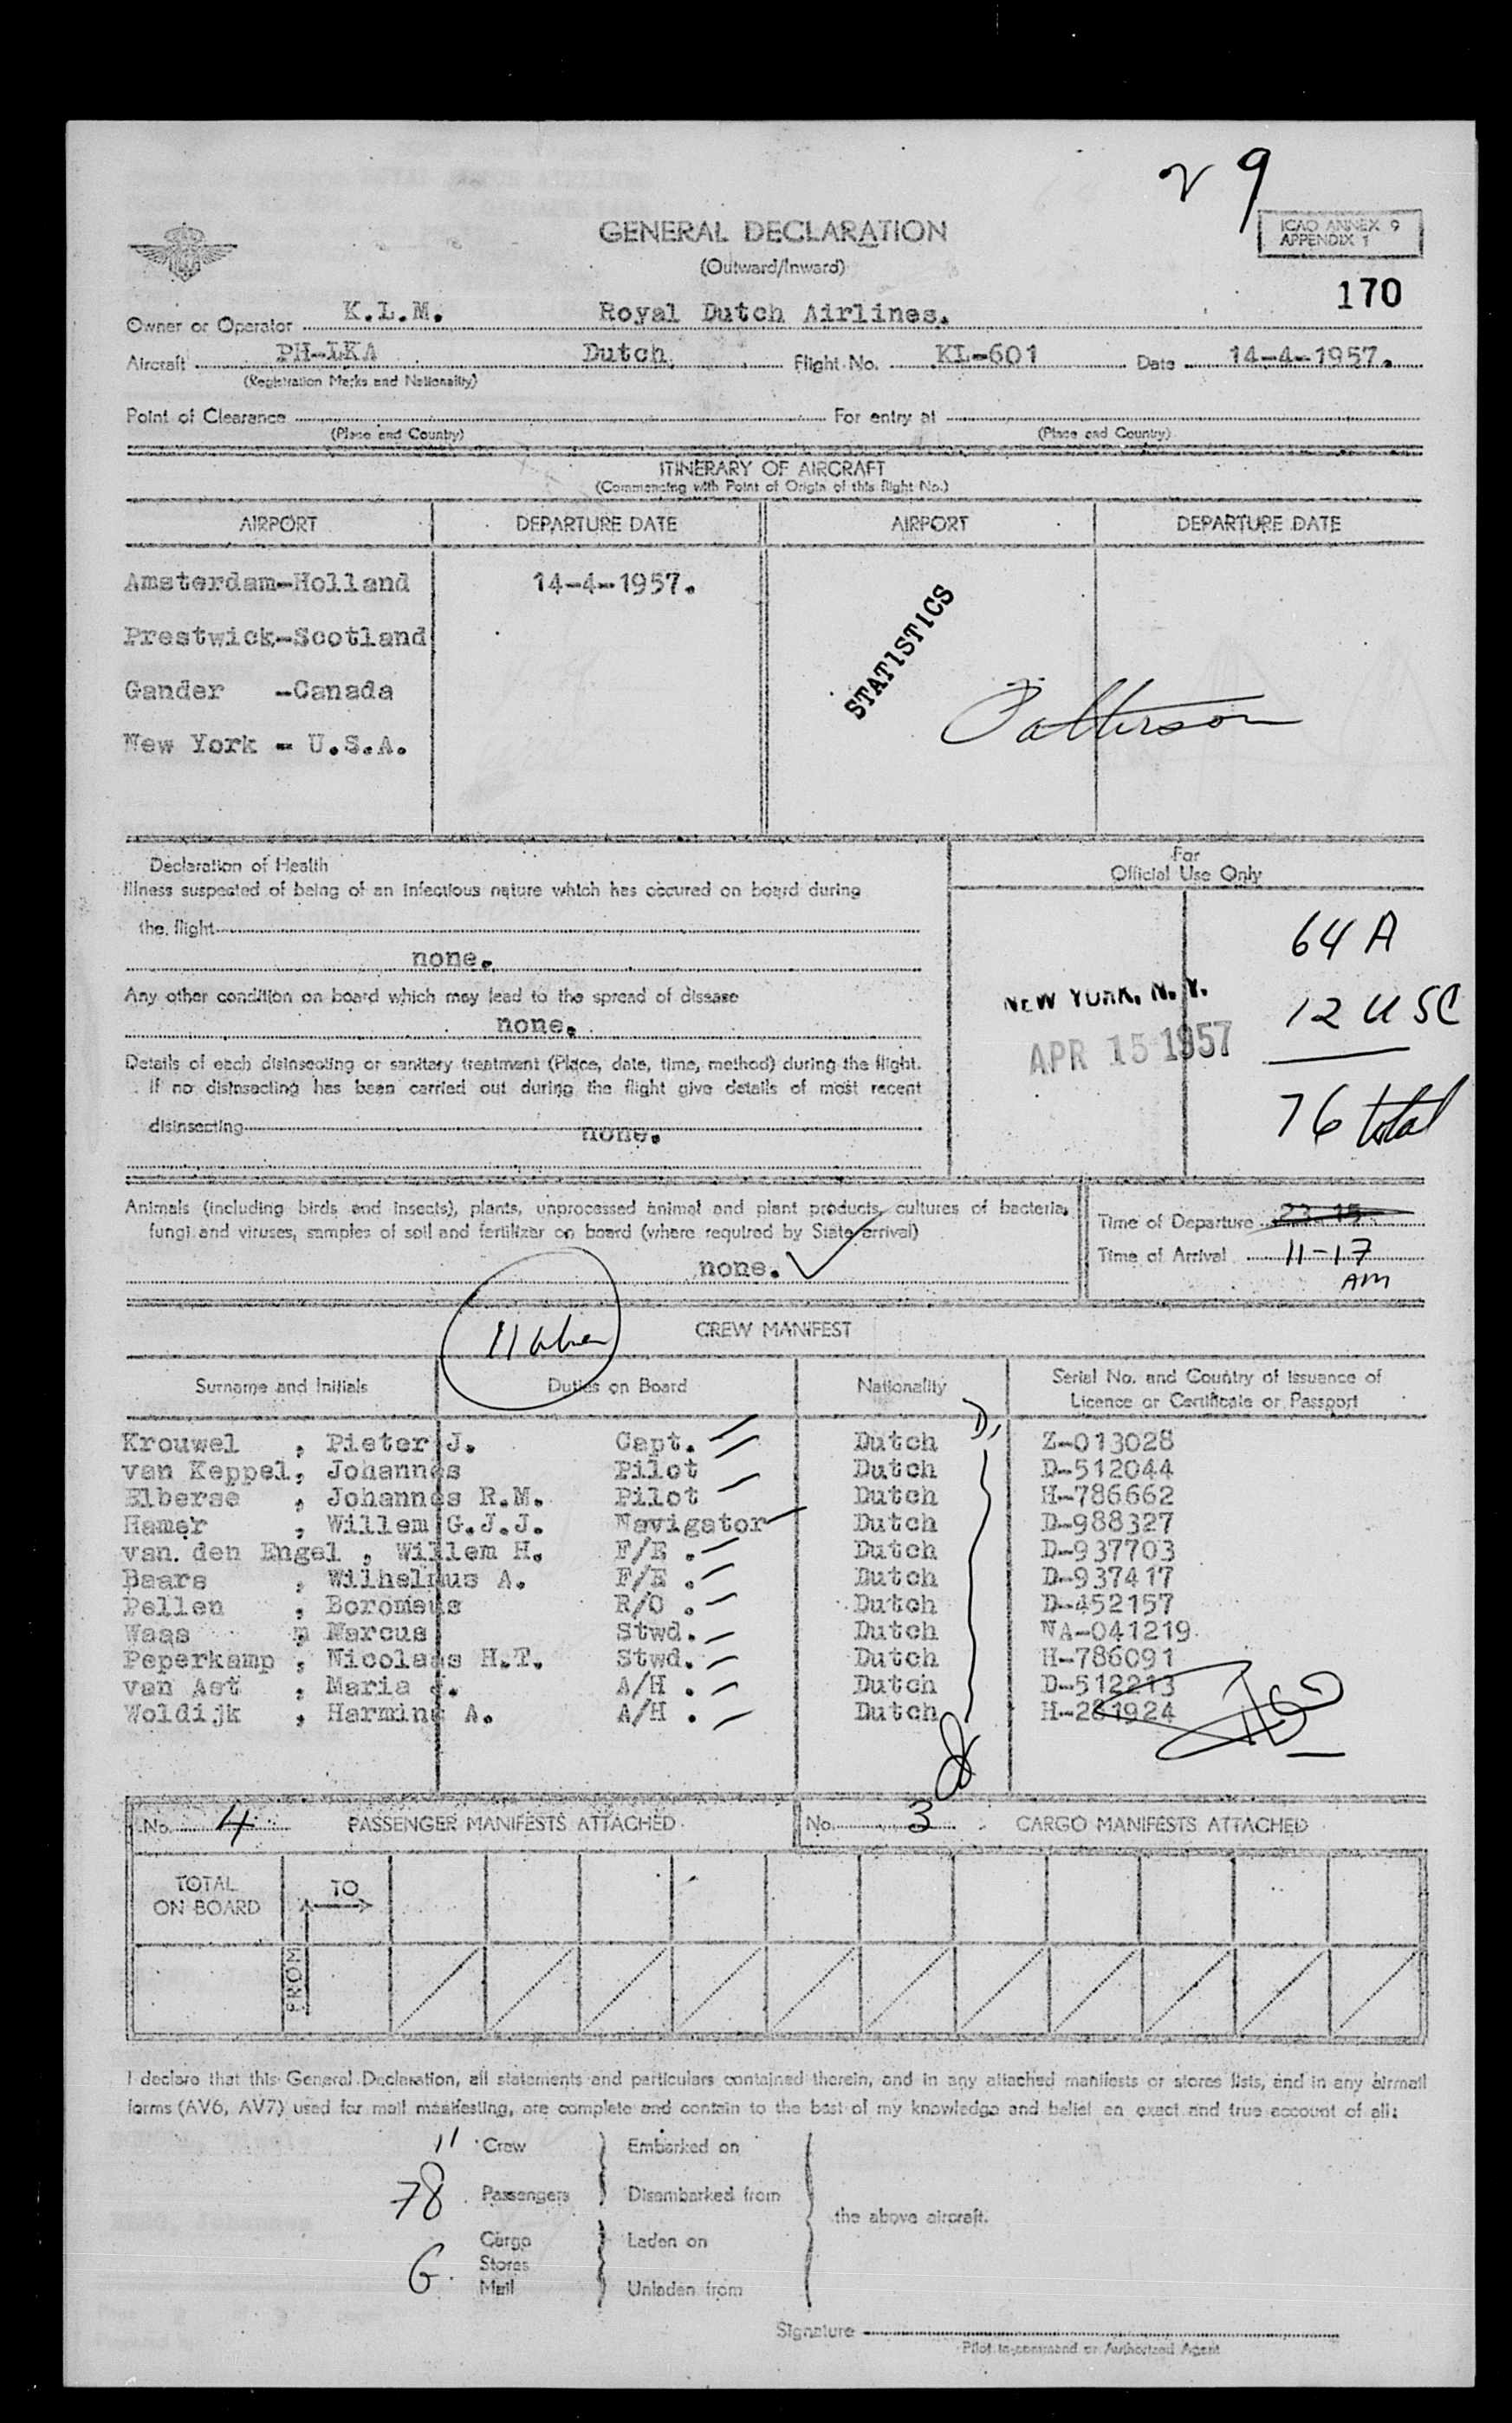 29
GENERAL DECLARATION
(Outward/Inward)
ICAO ANNEX 9
APPENDIX 1
170
Owner or Operator K.L.M. Royal Dutch Airlines.
Aircraft PH-LKA Dutch Flight No. KL-601 Date 14-4-1957.
(Registration Marks and Nationality)
Point of Clearance For entry at
(Place and Country) (Place and Country)
ITINERARY OF AIRCRAFT
(Commencing with Point of Origin of this flight No.)
AIRPORT DEPARTURE DATE AIRPORT DEPARTURE DATE
Amsterdam-Holland 14-4-1957.
Prestwick-Scotland
Gander -Canada
New York - U.S.A.
STATISTICS
Patterson
Declaration of Health
Illness suspected of being of an infectious nature which has occured on board during
the flight
none.
Any other condition on board which may lead to the spread of disease
none.
Details of each disinsecting or sanitary treatment (Place, date, time, method) during the flight.
If no disinsecting has been carried out during the flight give details of most recent
disinsecting none.
For
Official Use Only
64 A
NEW YORK, N.Y.
12 USC
APR 15 1957
76 total
Animals (including birds and insects), plants, unprocessed animal and plant products, cultures of bacteria,
fungi and viruses, samples of soil and fertilizer on board (where required by State arrival)
none.
Time of Departure 23-15
Time of Arrival 11-17
AM
11
CREW MANIFEST
Surname and Initials Duties on Board Nationality Serial No. and Country of Issuance of
Licence or Certificate or Passport
Krouwel , Pieter J. Capt. Dutch Z-013028
van Keppel, Johannes Pilot Dutch D-512044
Elberse , Johannes R.M. Pilot Dutch H-786662
Hamer , Willem G.J.J. Navigator Dutch D-988327
van den Engel , Willem H. F/E . Dutch D-937703
Baars , Wilhelmus A. F/E . Dutch D-937417
Pellen , Boromeus R/O . Dutch D-452157
Waas m Marcus Stwd. Dutch NA-041219
Peperkamp , Nicolaas H.T. Stwd. Dutch H-786091
van Ast , Maria J. A/H . Dutch D-512213
Woldijk , Harmina A. A/H . Dutch H-281924
No. 4 PASSENGER MANIFESTS ATTACHED No. 3 CARGO MANIFESTS ATTACHED
TOTAL
ON BOARD
TO
FROM
I declare that this General Declaration, all statements and particulars contained therein, and in any attached manifests or stores lists, and in any airmail
forms (AV6, AV7) used for mail manifesting, are complete and contain to the best of my knowledge and belief an exact and true account of all:
11 Crew Embarked on
78 Passengers Disembarked from
the above aircraft.
Cargo Laden on
6 Stores
Mail Unladen from
Signature
Pilot in command or Authorized Agent